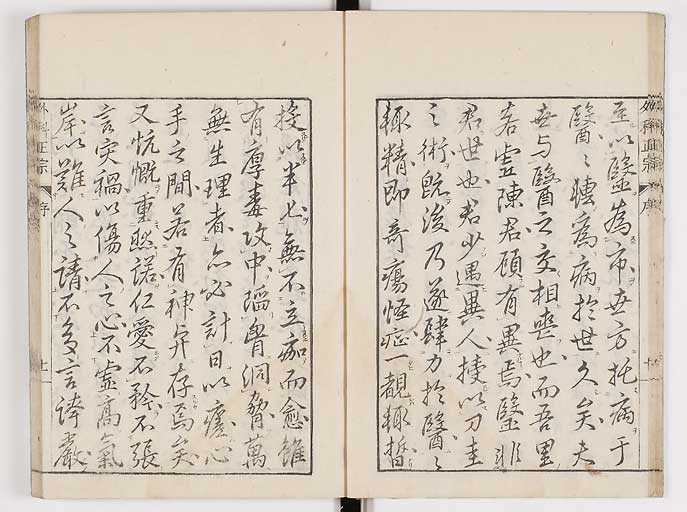 外科正宗
序
至以醫為市世方托病于
醫醫轉為病於世久矣夫
世与醫之交相喪也而吾里
若虛陳君顧有異焉醫非
君世也君少遇異人授以刀圭
之術既後乃遂肆力於醫
輒精即奇瘍怪症一覩輒
投以半匕無不立痂而愈雖
有厚毒攻中瘤胃洞脅萬
無生理者亦必計日以瘥心
手之間若有神奇存焉矣
又忼慨重然諾仁愛不矜不張
言災禍以傷人之心不虛高氣
岸以難人之請不多言誇嚴
外科正宗
序
十一